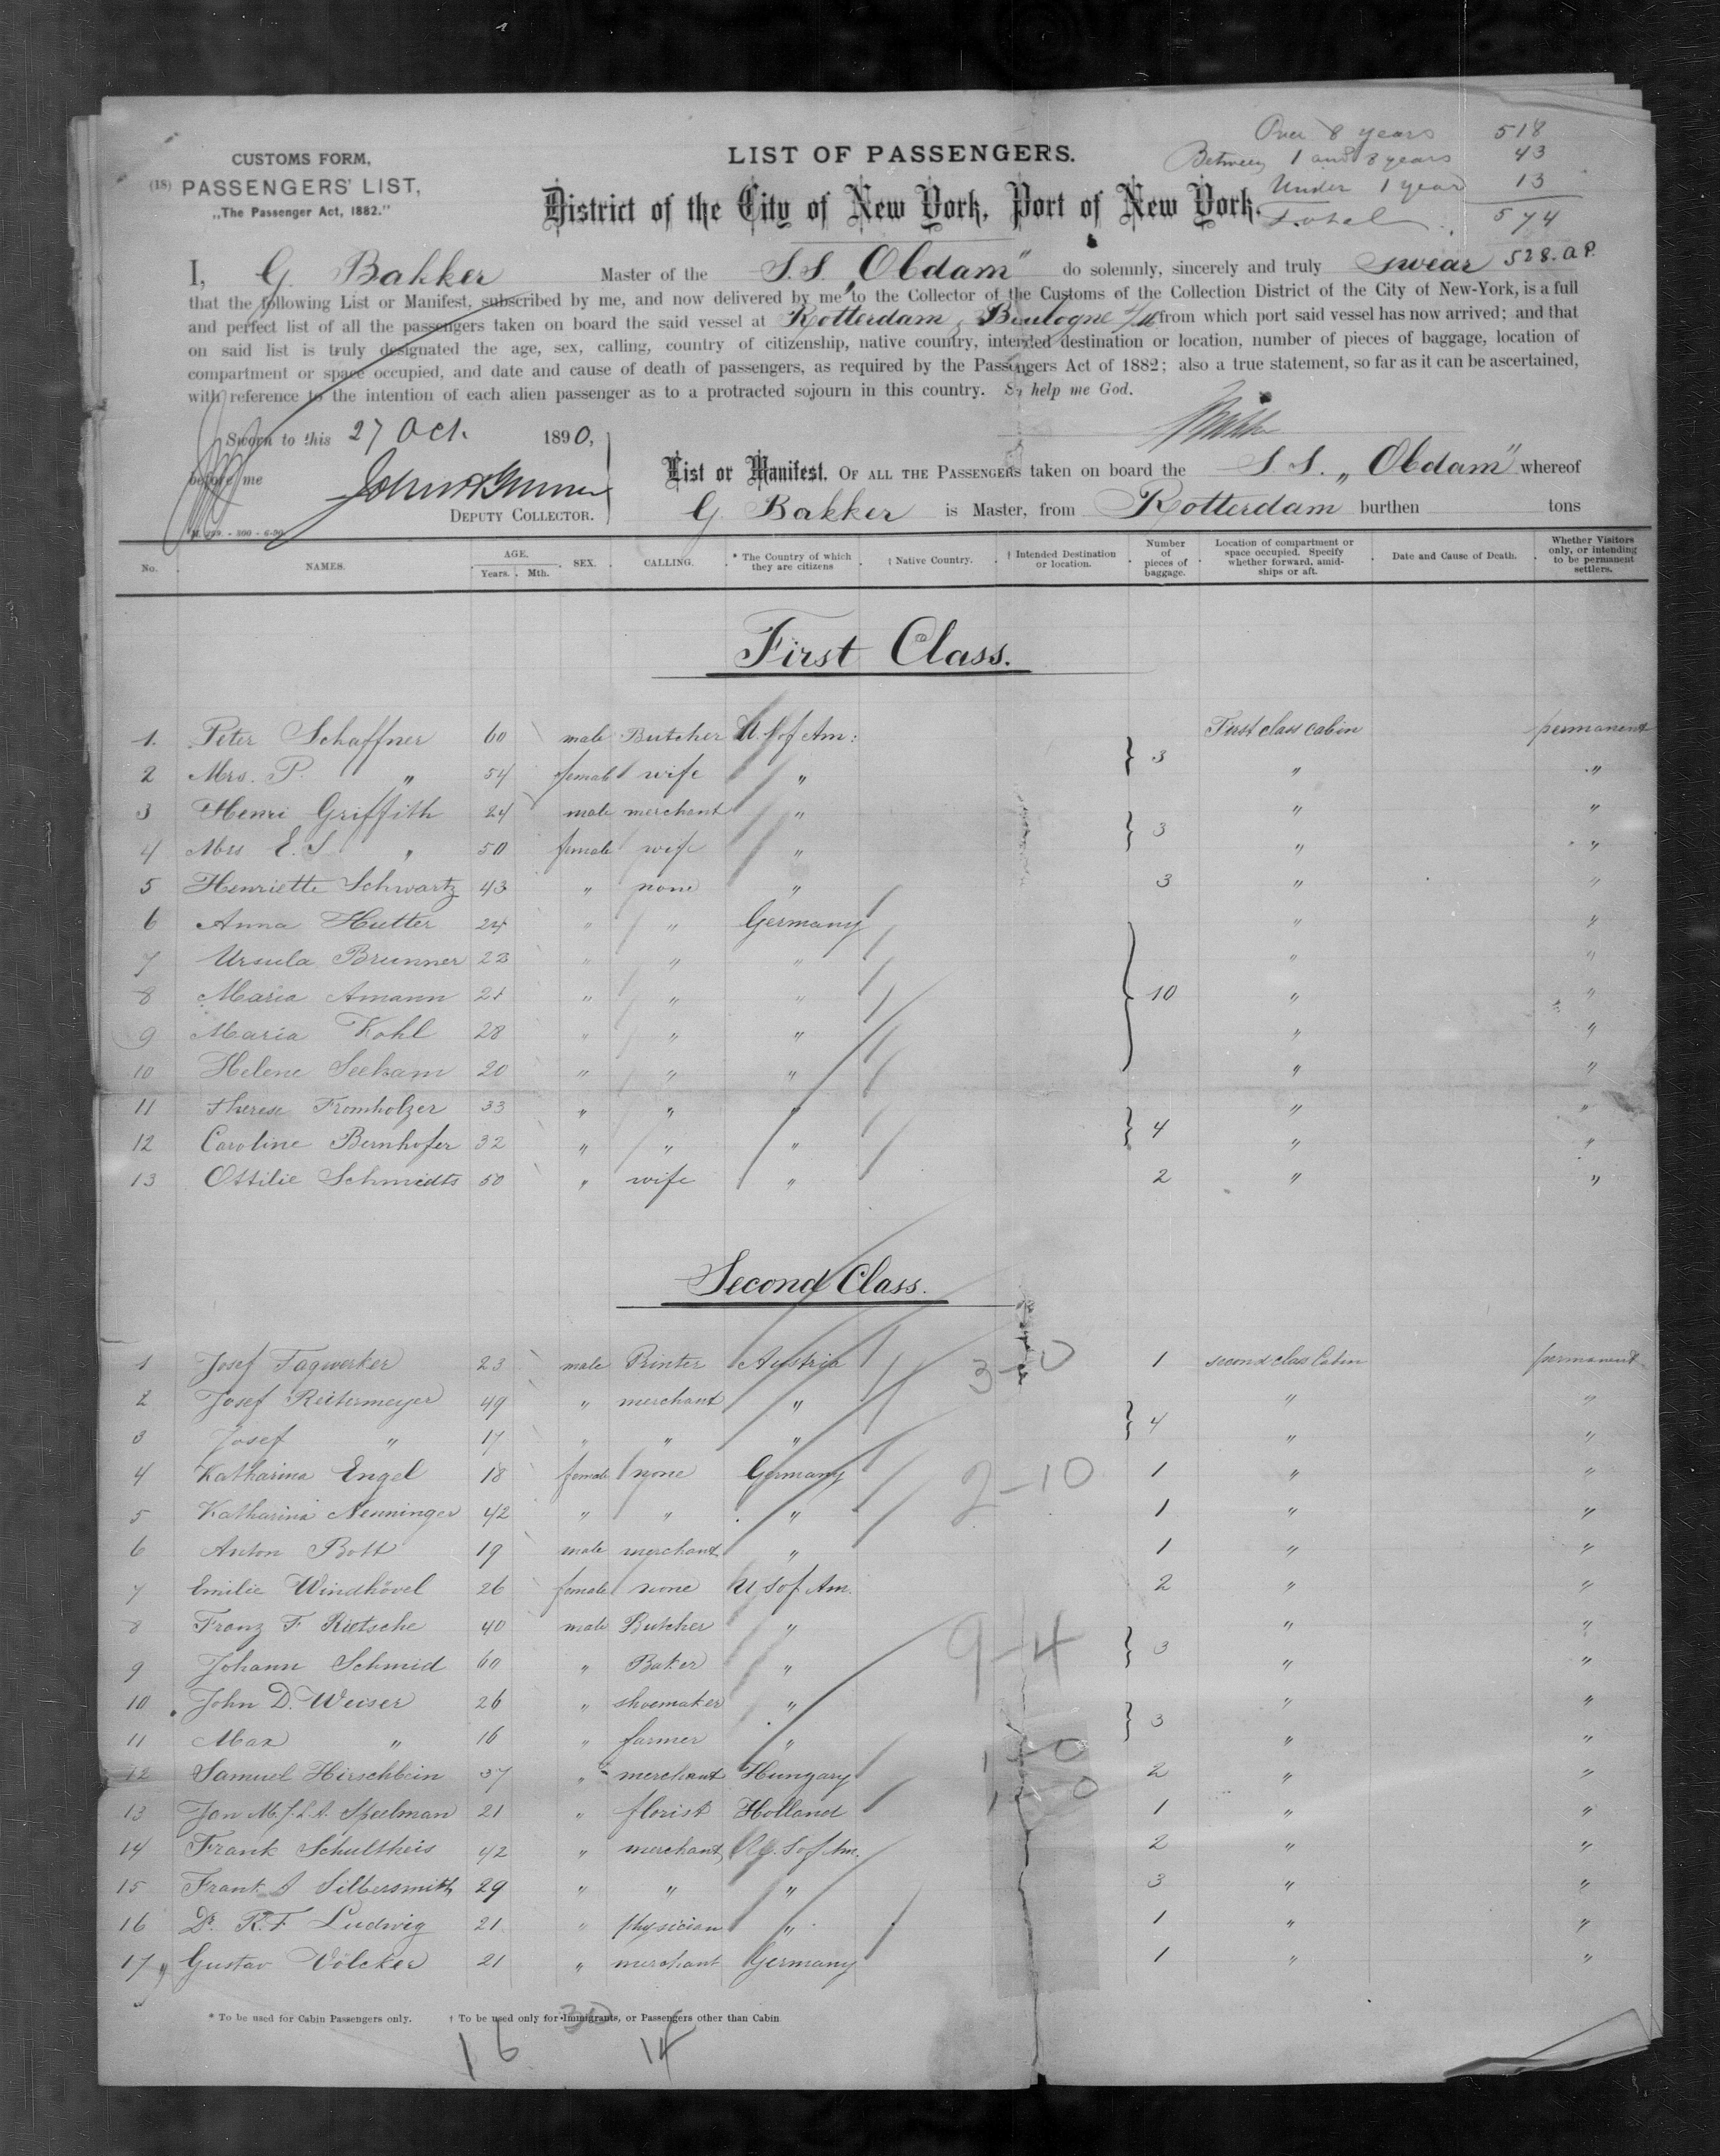 CUSTOMS FORM,
(18) PASSENGERS' LIST,
„The Passenger Act, 1882."
LIST OF PASSENGERS.
District of the City of New York, Port of New York.
Over 8 years 518
Between 1 and 8 years 43
Under 1 year 13
Total 574
528. a P.
I, G. Bakker Master of the S.S. „Obdam" do solemnly, sincerely and truly swear
that the following List or Manifest, subscribed by me, and now delivered by me to the Collector of the Customs of the Collection District of the City of New-York, is a full
and perfect list of all the passengers taken on board the said vessel at Rotterdam & Boulogne s/M from which port said vessel has now arrived; and that
on said list is truly designated the age, sex, calling, country of citizenship, native country, intended destination or location, number of pieces of baggage, location of
compartment or space occupied, and date and cause of death of passengers, as required by the Passengers Act of 1882; also a true statement, so far as it can be ascertained,
with reference to the intention of each alien passenger as to a protracted sojourn in this country. So help me God.
Sworn to this 27 Oct. 1890,
before me
DEPUTY COLLECTOR.
List or Manifest, OF ALL THE PASSENGERS taken on board the S.S. „Obdam" whereof
G. Bakker is Master, from Rotterdam burthen tons
No. NAMES. AGE. Years. Mth. SEX. CALLING. * The Country of which they are citizens † Native Country. † Intended Destination or location. Number of pieces of baggage. Location of compartment or space occupied. Specify whether forward, amidships or aft. Date and Cause of Death. Whether Visitors only, or intending to be permanent settlers.
First Class.
1. Peter Schaffner 60 male Butcher U. S of Am: First class cabin permanent
2 Mrs. P. " 54 female wife " 3 " "
3 Henri Griffith 24 male merchant " " "
4 Mrs E. S. " 50 female wife " 3 " "
5 Henriette Schwartz 43 " none " 3 " "
6 Anna Hutter 24 " " Germany " "
7 Ursula Brunner 23 " " " " "
8 Maria Amann 21 " " " 10 " "
9 Maria Kohl 28 " " " " "
10 Helene Seekam 20 " " " " "
11 Therese Fromholzer 33 " " " " "
12 Caroline Bernhofer 32 " " " 4 " "
13 Ottilie Schmidts 50 " wife " 2 " "
Second Class.
1 Josef Tagwerker 23 male Printer Austria 3-0 1 second class Cabin permanent
2 Josef Rietermeyer 49 " merchant " " "
3 Josef " 17 " " " 4 " "
4 Katharina Engel 18 female none Germany 2-10 1 " "
5 Katharina Nenninger 42 " " " 1 " "
6 Anton Bott 19 male merchant " 1 " "
7 Emilie Windhövel 26 female none U S of Am. 2 " "
8 Franz F Rietsche 40 male Butcher " " "
9 Johann Schmid 60 " Baker " 9-4 3 " "
10 John D. Weiser 26 " shoemaker " " "
11 Max " 16 " farmer " 3 " "
12 Samuel Hirschbein 37 " merchant Hungary 1-0 2 " "
13 Jan M. J. L. A. Speelman 21 " florist Holland 1-0 1 " "
14 Frank Schultheis 42 " merchant U. S of Am. 2 " "
15 Frank S Silbersmith 29 " " " 3 " "
16 Dr. R. F Ludwig 21 " physician " 1 " "
17 Gustav Völcker 21 " merchant Germany 1 " "
* To be used for Cabin Passengers only. † To be used only for Immigrants, or Passengers other than Cabin
30
16 14